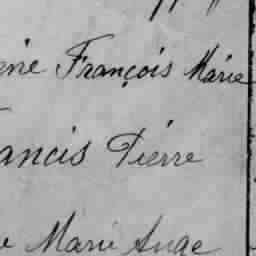 François Marie
ancis Pierre
Marie Ange